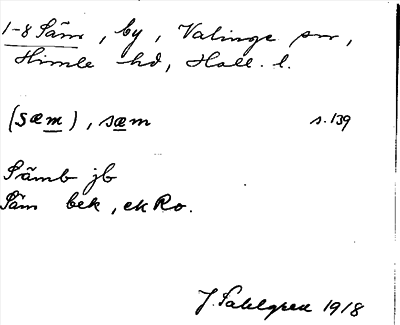 1-8 Säm, by, Valinge sn,
Himle hd, Hall. l.
(sæm), sæm s. 139
Sämb jb
Säm bek, ekRo.
J. Sahlgren 1918